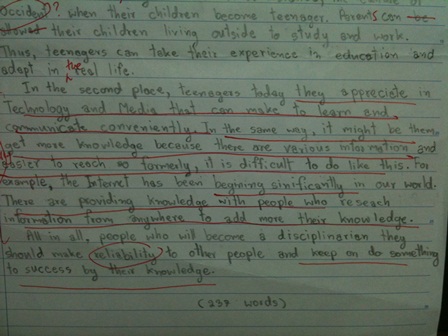 Occident)?? when their children become teenager. Parents can be
stowed their children living outside to study and work.
Thus, teenagers can take their experience in education and
adapt in the real life.
In the second place, teenagers today they appreciate in
Technology and Media that can make to learn and
communicate conveniently. In the same way, it might be them
get more knowledge because there are various information and
easier to reach so formerly, it is difficult to do like this. For
example, the Internet has been begining sinificantly in our world.
There are providing knowledge with people who reseach
information from anywhere to add more their knowledge.
All in all, people who will become a disciplinarian they
should make reliability to other people and keep on do something
to success by their knowledge.
(237 words)